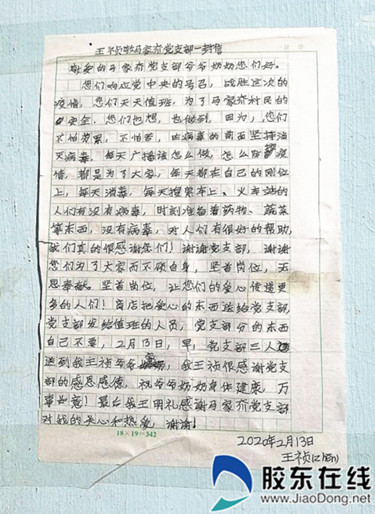 王祯致马家夼党支部一封信
敬爱的马家夼党支部爷爷奶奶您们好。
您们响应党中央的号召，战胜这次的
疫情，您们天天值班，为了马家夼村民的
安全，您们也想，也做到，因为，您们
不怕劳累，不怕苦，在病毒的前面坚持消
灭病毒。每天广播该怎么做，怎么防疫
情，都是为了大家，每天都在自己的岗位
上，每天消毒，每天搜索车上、火车站的
人们有没有病毒，时刻准备着药物、蔬菜
等东西，没有病毒，对人们有很好的帮助，
我们真的很感谢您们！谢谢党支部，谢谢
您们为了大家而不顾自身，坚着岗位，无
思奉献，坚着岗位，让您们的爱心传递更
多的人们！商店把爱心的东西送给党支部，
党支部发给值班的人员，党支部分的东西
自己不要，2月13日，早，党支部三人
送到我王祯爷爷家，我王祯很感谢党支
部的感恩感德，祝爷爷奶奶身体健康，万
事如意！最后我王用礼感谢马家夼党支部
对我的关心和热爱，谢谢！
18×19=342
2020年2月13日
王祯(zhēn)
胶东在线
www.JiaoDong.net